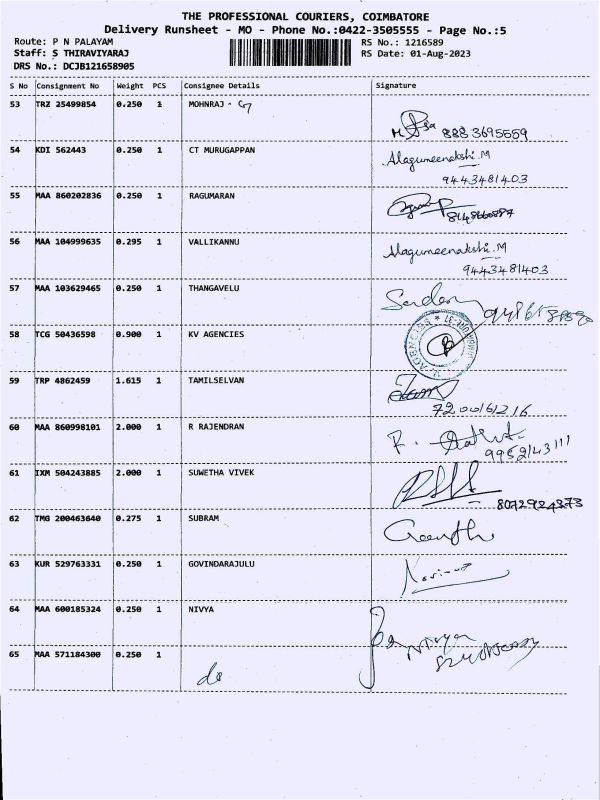 THE PROFESSIONAL COURIERS, COIMBATORE
Delivery Runsheet - MO - Phone No.:0422-3505555 - Page No.:5
Route: P N PALAYAM RS No.: 1216589
Staff: S THIRAVIYARAJ RS Date: 01-Aug-2023
DRS No.: DCJB121658905
S No Consignment No Weight PCS Consignee Details Signature
53 TRZ 25499854 0.250 1 MOHNRAJ
888 3695559
54 KDI 562443 0.250 1 CT MURUGAPPAN Alagumeenakshi.M
9443481403
55 MAA 860202836 0.250 1 RAGUMARAN
56 MAA 104999635 0.295 1 VALLIKANNU Alagumeenakshi.M
9443481403
57 MAA 103629465 0.250 1 THANGAVELU
58 TCG 50436598 0.900 1 KV AGENCIES
59 TRP 4862459 1.615 1 TAMILSELVAN
60 MAA 860998101 2.000 1 R RAJENDRAN
61 IXM 504243885 2.000 1 SUWETHA VIVEK
8072924373
62 TMG 200463640 0.275 1 SUBRAM
63 KUR 529763331 0.250 1 GOVINDARAJULU
64 MAA 600185324 0.250 1 NIVYA
Nivya
65 MAA 571184300 0.250 1
do